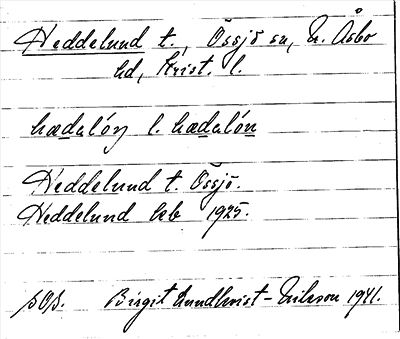 Heddelund t., Össjö sn, N. Åsbo
hd, Krist. l.
hædalóŋ l. hædalón
Heddelund t. Össjö.
Heddelund beb 1925.
Birgit Lundkvist-Nilsson 1941.